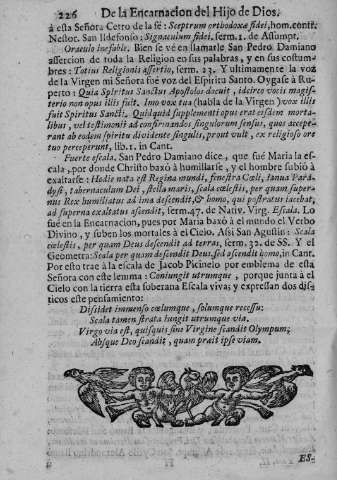 226 De la Encarnacion del Hijo de Dios.
à esta Señora Cetro de la fè: Sceptrum orthodoxæ fidei, hom. cont.
Nestor. San Ildefonso: Signaculum fidei, serm. 1. de Assumpt.
Oraculo inefable. Bien se vé en llamarle San Pedro Damiano
assercion de toda la Religion en sus palabras, y en sus costum-
bres: Totius Religionis assertio, serm. 23. Y ultimamente la voz
de la Virgen mi Señora fue voz del Espiritu Santo. Oygase à Ru-
perto: Quia Spiritus Sanctus Apostolos docuit, idcirco vocis magis-
terio non opus illis fuit. Imo vox tua (habla de la Virgen) vox illis
fuit Spiritus Sancti. Quidquid supplementi opus erat eisdem morta-
libus, vel testimonii ad confirmandos singulorum sensus, quos accepe-
rant ab eodem spiritu dividente singulis, prout vult, ex religioso ore
tuo perceperunt, lib. 1. in Cant.
Fuerte escala. San Pedro Damiano dice, que fué Maria la es-
cala, por donde Christo baxò à humillarse, y el hombre subiò à
exaltarse: Hodie nata est Regina mundi, fenestra Cœli, janua Para-
dysi, tabernaculum Dei, stella maris, scala cœlestis, per quam super-
nus Rex humiliatus ad ima descendit, & homo, qui postratus iacebat,
ad superna exaltatus ascendit, serm. 47. de Nativ. Virg. Escala. Lo
fuè en la Encarnacion, pues por Maria baxò al mundo el Verbo
Divino, y suben los mortales à el Cielo. Assi San Agustin: Scala
cœlestis, per quam Deus descendit ad terras, serm. 32. de SS. Y el
Geometra: Scala per quam descendit Deus, sed ascendit homo, in Cant.
Por esto trae à la escala de Jacob Picinelo por emblema de esta
Señora con este lemma: Coniungit utrumque, porque junta à el
Cielo con la tierra esta soberana Escala viva; y expressan dos dis-
ticos este pensamiento:
Dissidet immenso cœlumque, solumque recessu:
Scala tamen strata iungit utrumque via.
Virgo via est, quisquis sine Virgine scandit Olympum;
Absque Deo scandit, quam prait ipse viam.
ES-